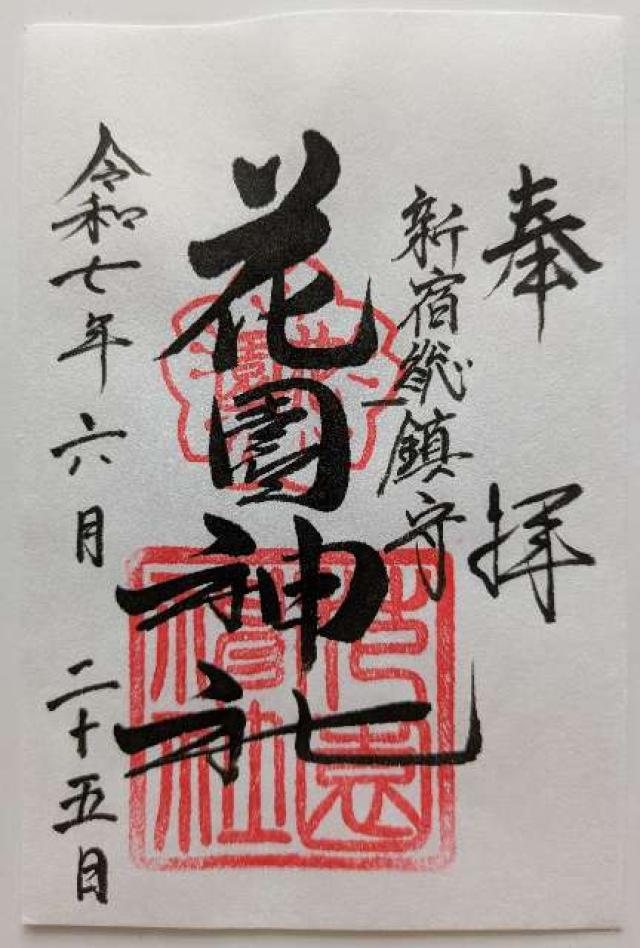 奉拝
新宿総鎮守
花園神社
令和七年六月二十五日
花園神社